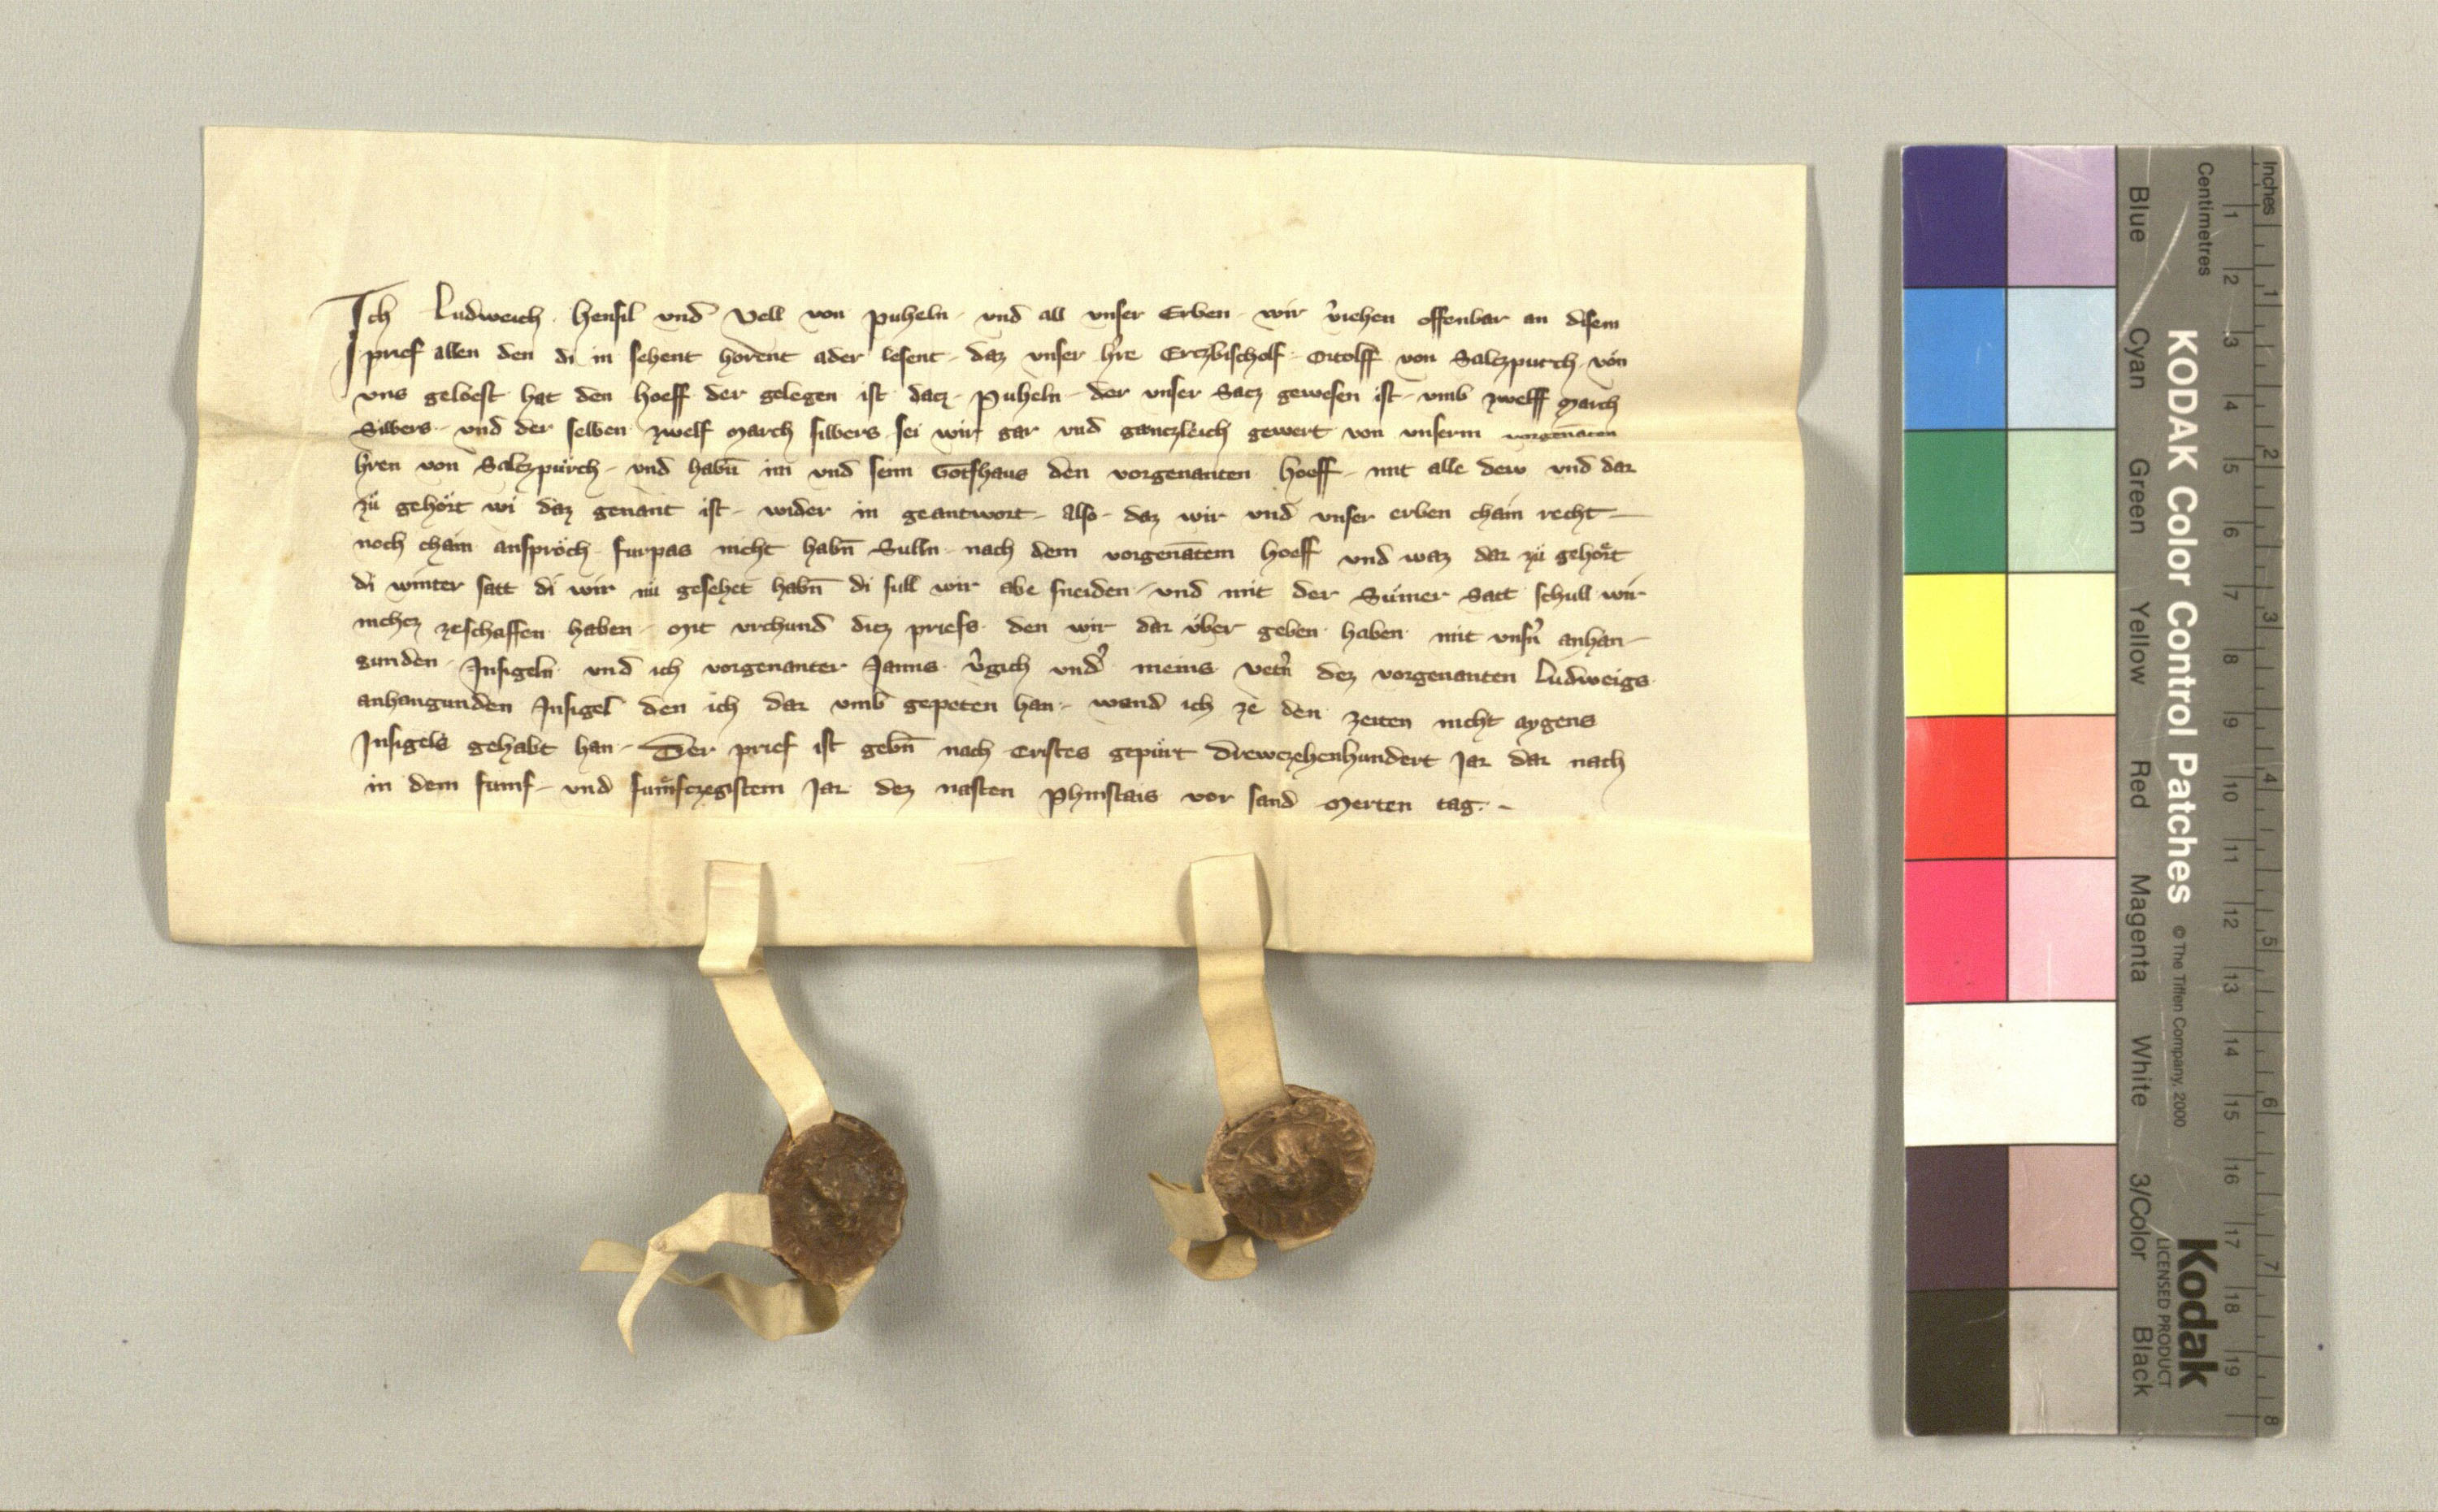 Ich Ludweich Hensil vnd Vell von Puheln vnd all vnser Erben wir v̾iehen offenbar an disem
prief allen den di in sehent horent ader lesent daz vnser h̾re Erczbischolf Ortolff von Salczpurch von
vns geloest hat den hoeff der gelegen ist dacz Puheln der vnser Sacz gewesen ist vmb zwelff March
Silbers vnd der selben zwelf March silbers sei wir gar vnd ganczleich gewert von vnserm vorgenāten
h̾ren von Salczpürch vnd habn̄ im vnd seim Gotshaus den vorgenanten hoeff mit alle dew vnd dar
zů gehört wi daz genant ist wider in geantwort also daz wir vnd vnser erben chain recht
noch chain ansproͤch furpas nicht habn̄ Sulln nach dem vorgenātem hoeff vnd waz dar zů gehoͤrt
di winter satt di wir nů gesehet habn̄ di sull wir abe sneiden vnd mit der Sumer Satt schull wir
nichcz zeschaffen haben Mit vrchund dicz priefs den wir dar vͤber geben haben mit vnsn̾ anhan
gunden Insigeln vnd ich vorgenanter Janns v̾gich vnd̾ meins vetn̾ dez vorgenanten Ludweigs
anhangunden Insigel den ich dar vmb gepeten han wand ich ze den zeiten nicht aygens
Insigels gehabt han Der prief ist gebn̄ nach Cristes gepürt Drewczehenhundert Jar dar nach
in dem fumf vnd fumͤfczegistem Jar dez nasten Phinstais vor sand Merten tag
KODAK Color Control Patches
© The Tiffen Company, 2000
Kodak
LICENSED PRODUCT
Inches
1 2 3 4 5 6 7 8
Centimetres
1 2 3 4 5 6 7 8 9 10 11 12 13 14 15 16 17 18 19
Blue
Cyan
Green
Yellow
Red
Magenta
White
3/Color
Black